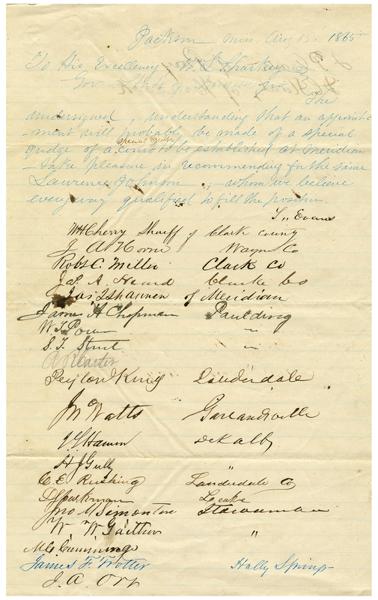 Jackson Miss Aug 15. 1865
To His Excellency W L Sharkey
The
undersigned, understanding that an appoint-
ment will probably be made of a special
Judge of a court to be established at Meridian
take pleasure in recommending for the same
Lawrence Johnson, whom we believe
every way qualified to fill the position.
T. N Evans
WH Cherry Sheriff of Clark county
J. A Horne Wayne Co
Robt C. Miller Clark Co
S. A. Heard Clarke Co
of Meridian
James H Chapman Paulding
"
S. F. "
Peyton King Lauderdale
JM Watts Garlandville
DeKalb
H J Gully "
C. E. Rushing Lauderdale Co
Leake
Jno M Simonton
W. W. Gaither "
McCummings
James F. Trotter Holly Springs
J. A. Orr